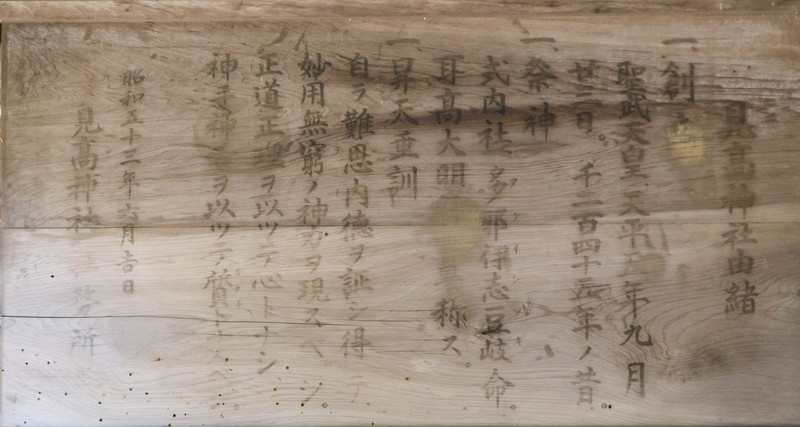 見高神社由緒
一、創立
聖武天皇、天平五年九月
廿三日。千二百四十五年ノ昔。
一、祭神
式内社、多那伊志豆岐命。
耳高大明 称ス。
一、昇天垂訓
自ラ難思内徳ヲ証シ得テ
妙用無窮ノ神力ヲ現スベシ。
正道正 ヲ以ツテ心トナシ
神 神 ヲ以ツテ
昭和五十二年六月吉日
見高神社 務所